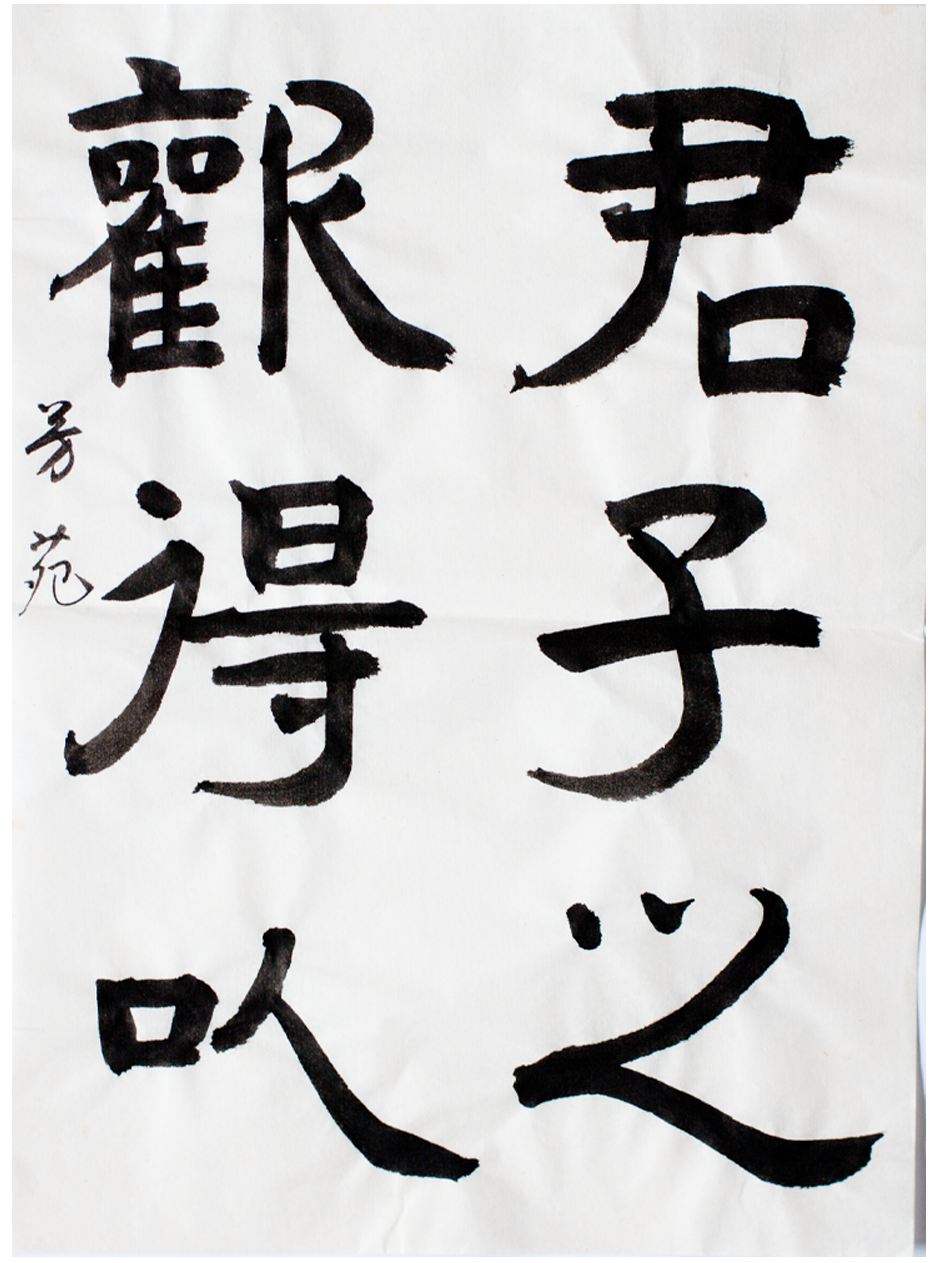 君子之
歡得以
芳苑